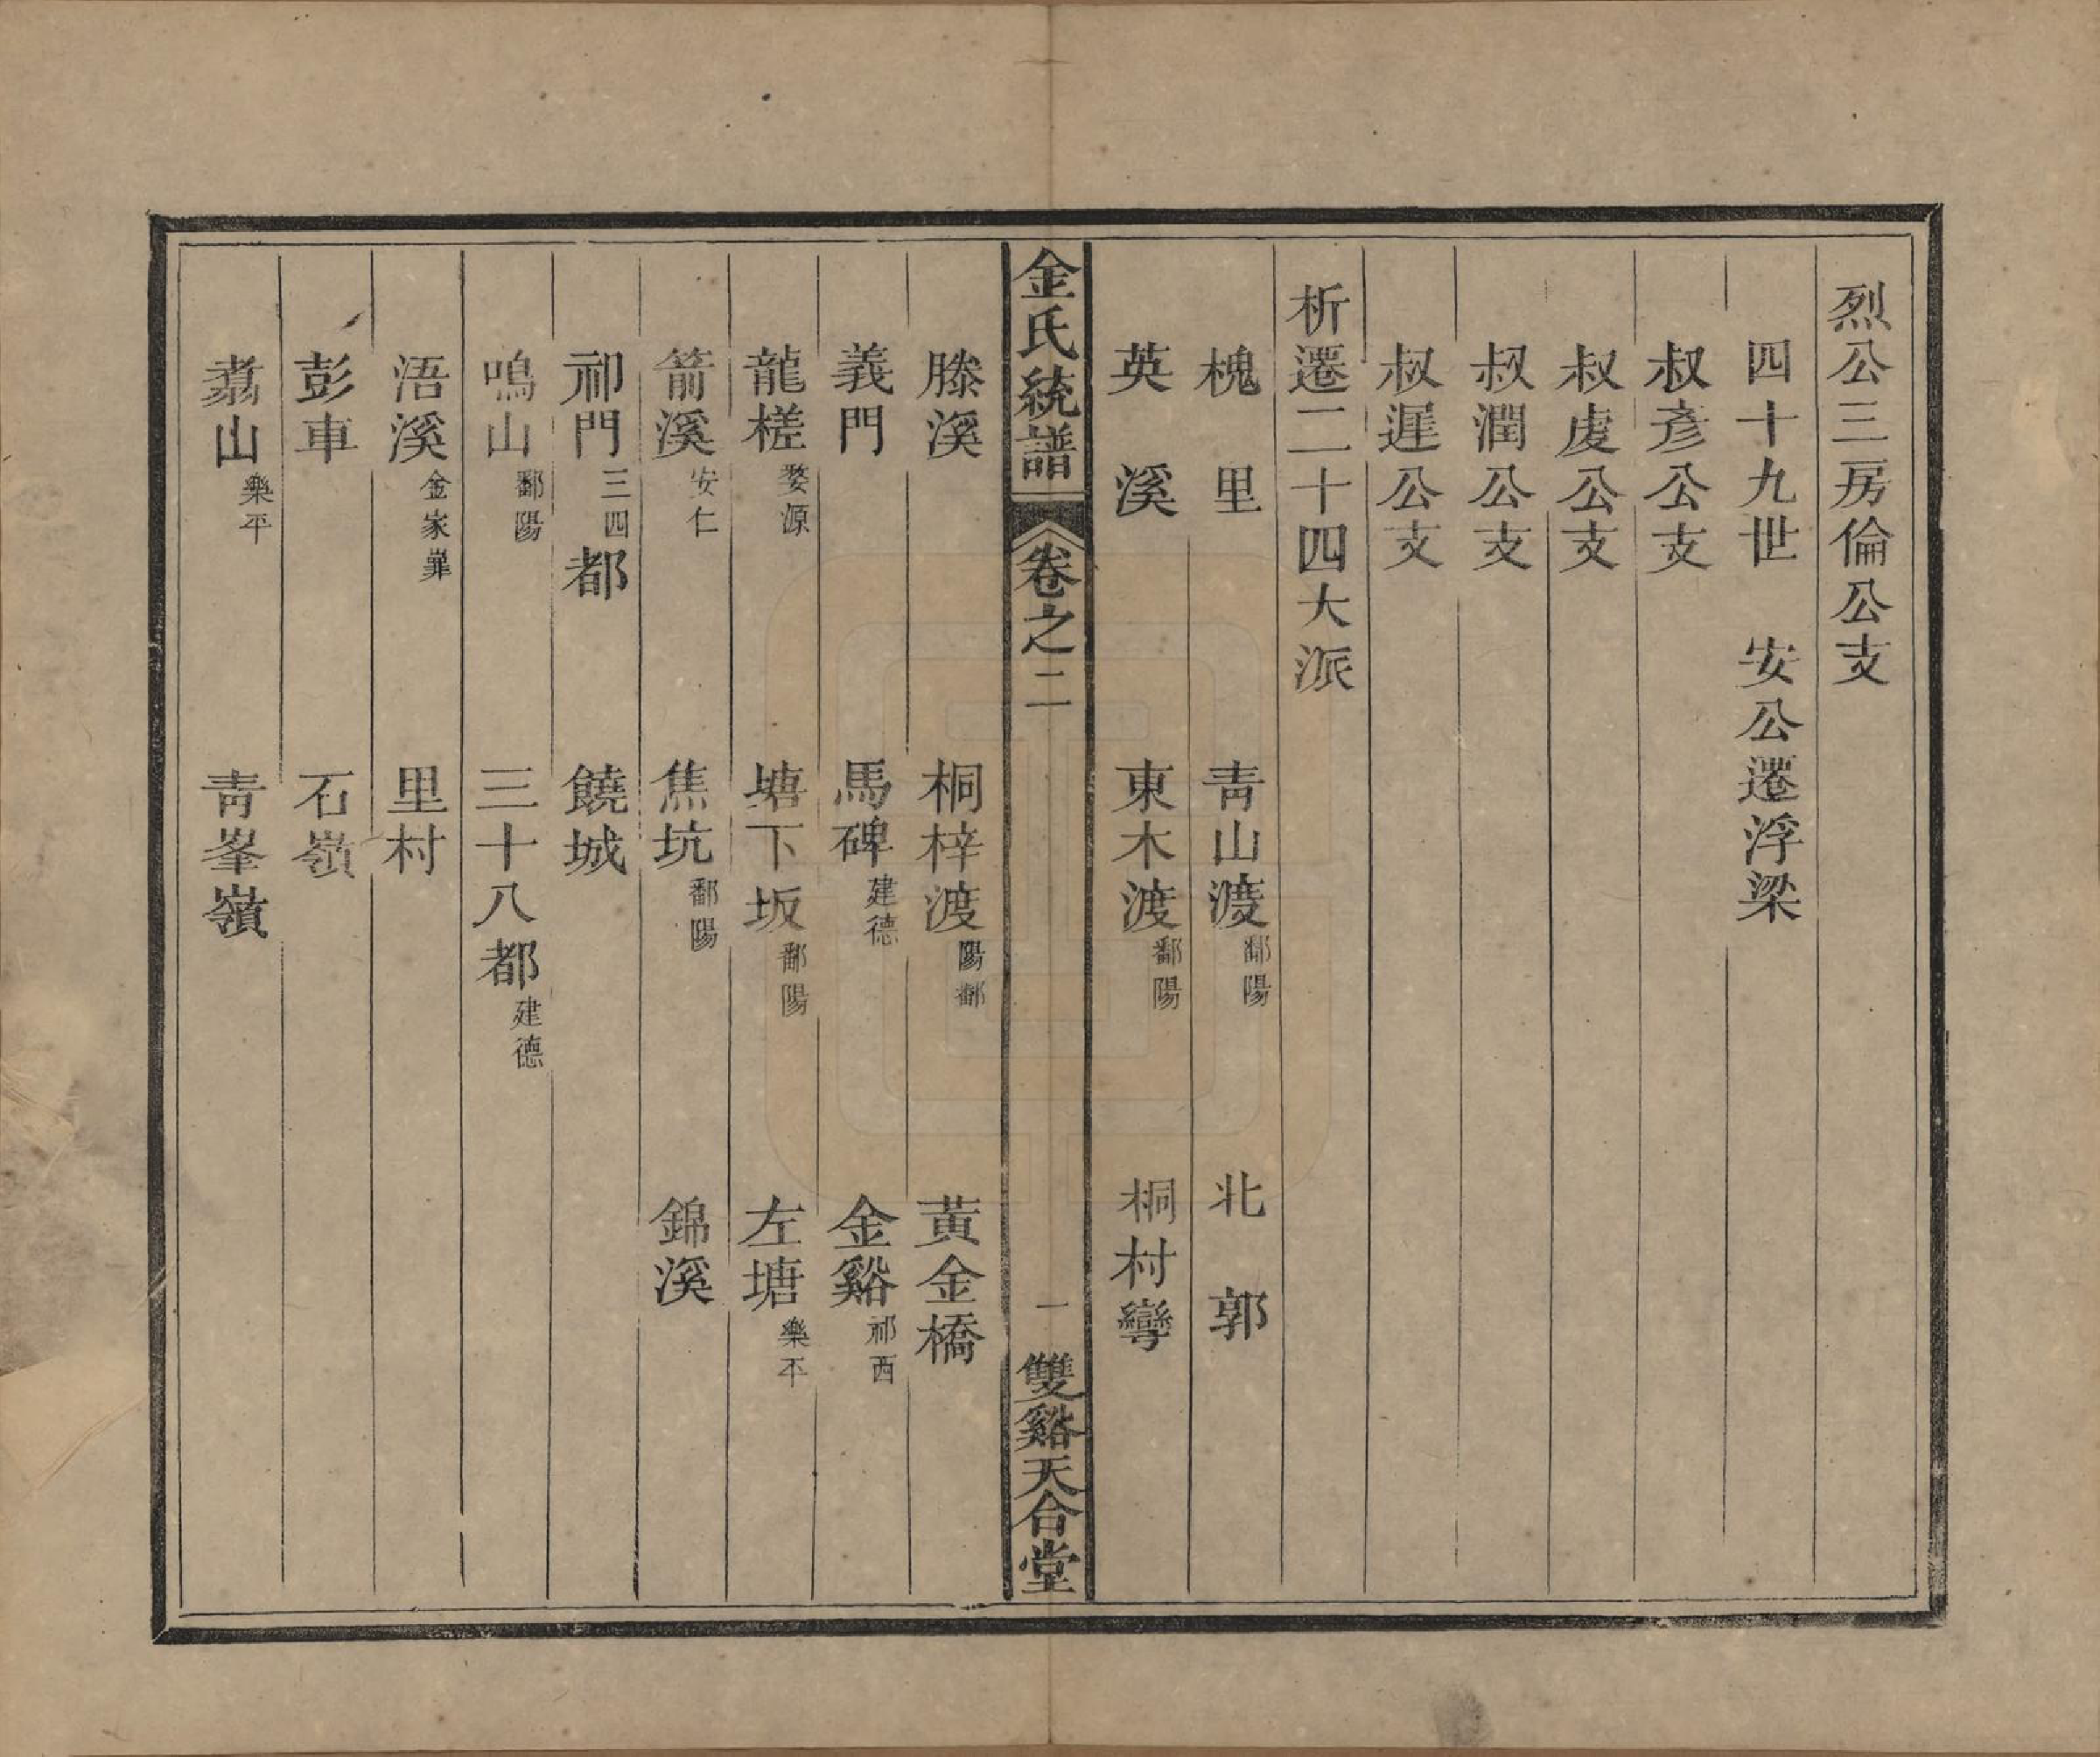 烈公三房倫公支
四十九世　安公遷浮梁
叔彥公支
叔虔公支
叔潤公支
叔遲公支
析遷二十四大派
槐里　青山渡鄱陽　北郭
英溪　東木渡鄱陽　桐村彎
金氏統譜　卷之二　一　雙谿天合堂
滕溪　桐梓渡陽鄱　黃金橋
義門　馬碑建德　金谿祁西
龍槎婺源　塘下坂鄱陽　左塘樂平
箭溪安仁　焦坑鄱陽　錦溪
祁門三四都　饒城
鳴山鄱陽　三十八都建德
浯溪金家巢　里村
彭車　石嶺
翥山樂平　青峯嶺